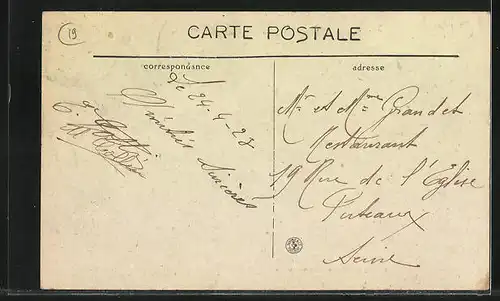 19
CARTE POSTALE
correspondance
adresse
Le 24-4-28
Amitiés Sincères
Mr et Mme Grandet
Restaurant
19 Rue de l'Église
Puteaux
Seine